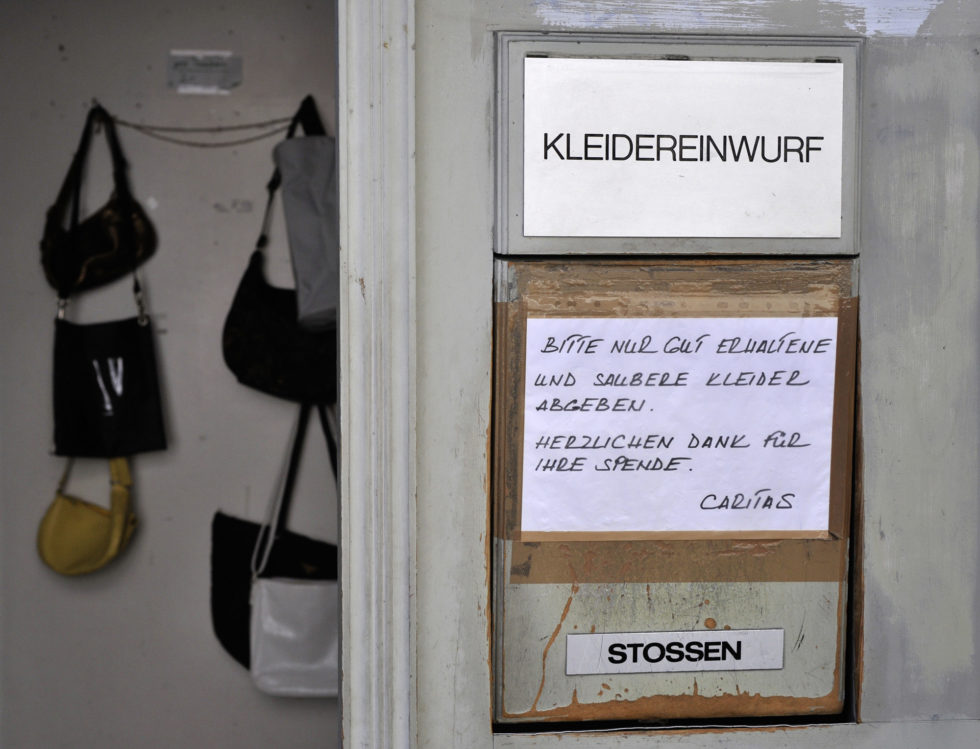 KLEIDEREINWURF
BITTE NUR GUT ERHALTENE
UND SAUBERE KLEIDER
ABGEBEN.
HERZLICHEN DANK FÜR
IHRE SPENDE.
CARITAS
STOSSEN